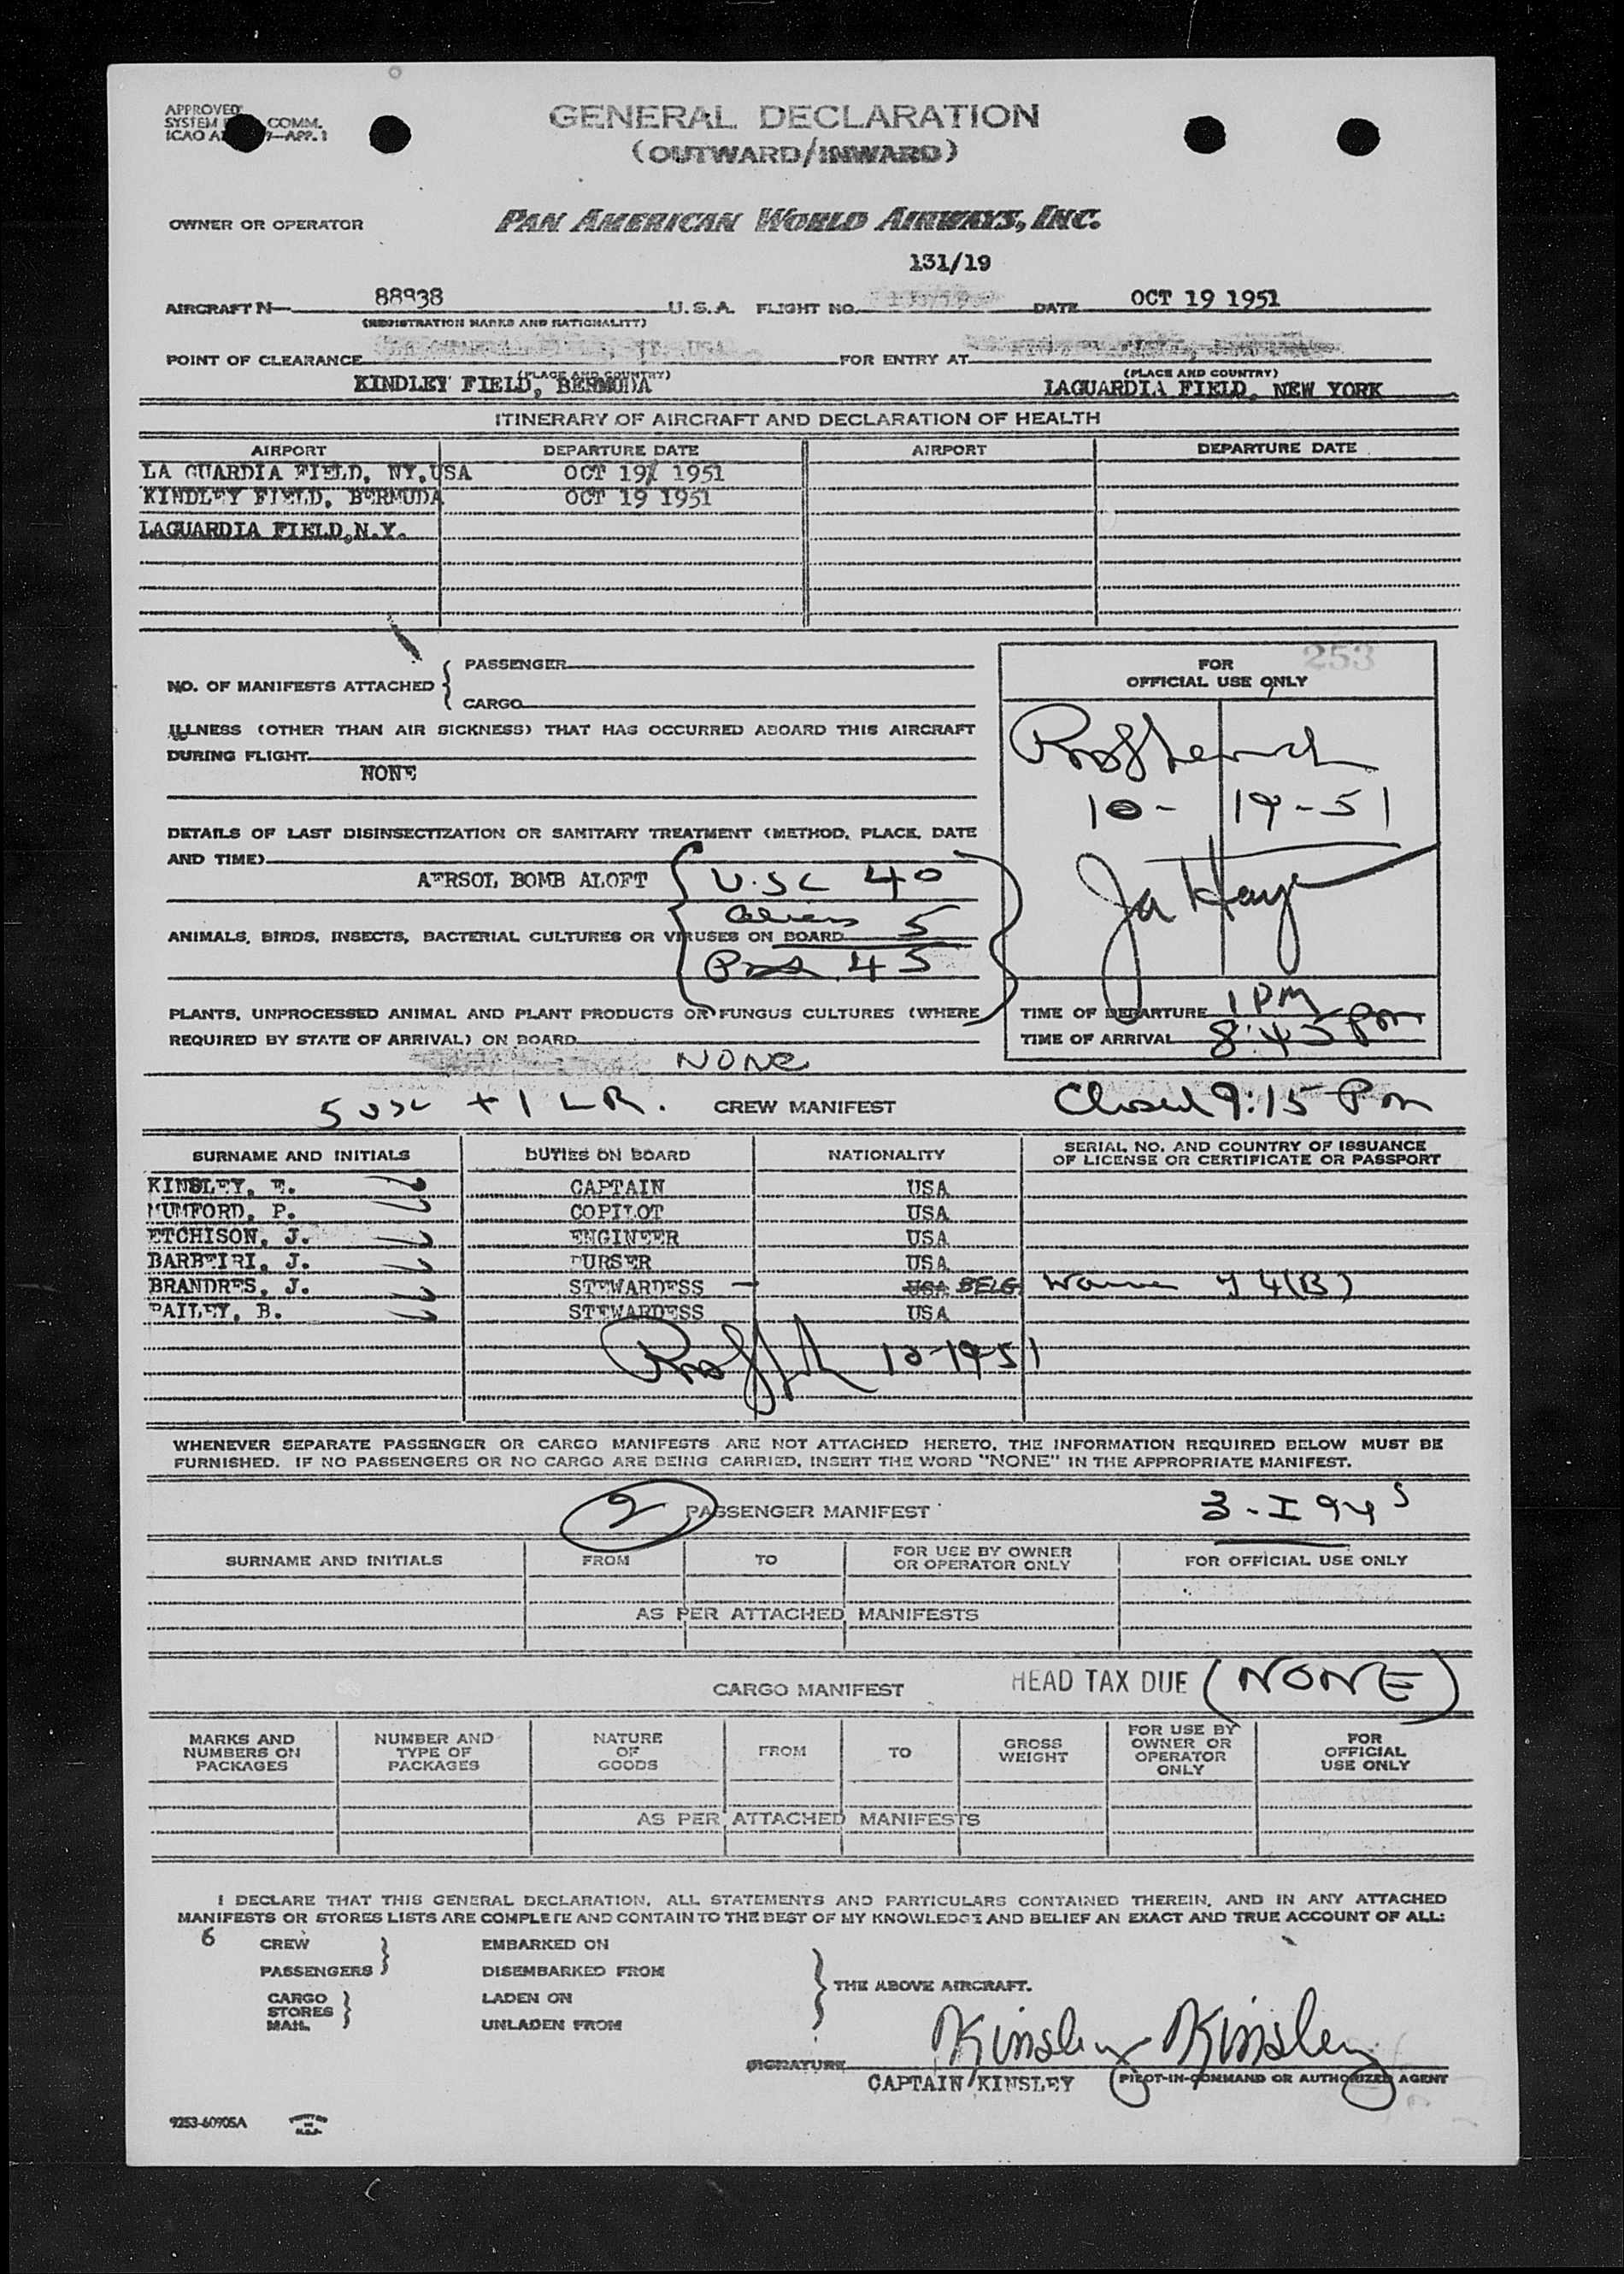 APPROVED
SYSTEM COMM.
ICAO 7—APP. 1
GENERAL DECLARATION
(OUTWARD/INWARD)
OWNER OR OPERATOR PAN AMERICAN WORLD AIRWAYS, INC.
131/19
AIRCRAFT N— 88938 U.S.A. FLIGHT NO. DATE OCT 19 1951
(REGISTRATION MARKS AND NATIONALITY)
POINT OF CLEARANCE FOR ENTRY AT
(PLACE AND COUNTRY) (PLACE AND COUNTRY)
KINDLEY FIELD, BERMUDA LAGUARDIA FIELD, NEW YORK
ITINERARY OF AIRCRAFT AND DECLARATION OF HEALTH
AIRPORT DEPARTURE DATE AIRPORT DEPARTURE DATE
LA GUARDIA FIELD, NY, USA OCT 19 1951
KINDLEY FIELD, BERMUDA OCT 19 1951
LAGUARDIA FIELD, N.Y.
NO. OF MANIFESTS ATTACHED { PASSENGER
CARGO
FOR 253
OFFICIAL USE ONLY
ILLNESS (OTHER THAN AIR SICKNESS) THAT HAS OCCURRED ABOARD THIS AIRCRAFT
DURING FLIGHT
NONE
10-19-51
DETAILS OF LAST DISINSECTIZATION OR SANITARY TREATMENT (METHOD, PLACE, DATE
AND TIME)
AERSOL BOMB ALOFT U.S.C 40
Aliens 5
ANIMALS, BIRDS, INSECTS, BACTERIAL CULTURES OR VIRUSES ON BOARD
45
PLANTS, UNPROCESSED ANIMAL AND PLANT PRODUCTS OR FUNGUS CULTURES (WHERE
REQUIRED BY STATE OF ARRIVAL) ON BOARD
NONE
TIME OF DEPARTURE 1 PM
TIME OF ARRIVAL 8:45 Pm
5 USC + 1 L.R. CREW MANIFEST Closed 9:15 Pm
SURNAME AND INITIALS DUTIES ON BOARD NATIONALITY SERIAL NO. AND COUNTRY OF ISSUANCE
OF LICENSE OR CERTIFICATE OR PASSPORT
KINSLEY, E. CAPTAIN USA
MUMFORD, P. COPILOT USA
ETCHISON, J. ENGINEER USA
BARBEIRI, J. PURSER USA
BRANDRES, J. STEWARDESS — USA BELG. 4(B)
BAILEY, B. STEWARDESS USA
10-19-51
WHENEVER SEPARATE PASSENGER OR CARGO MANIFESTS ARE NOT ATTACHED HERETO, THE INFORMATION REQUIRED BELOW MUST BE
FURNISHED. IF NO PASSENGERS OR NO CARGO ARE BEING CARRIED, INSERT THE WORD "NONE" IN THE APPROPRIATE MANIFEST.
2 PASSENGER MANIFEST 3-I 94 s
SURNAME AND INITIALS FROM TO FOR USE BY OWNER
OR OPERATOR ONLY FOR OFFICIAL USE ONLY
AS PER ATTACHED MANIFESTS
CARGO MANIFEST HEAD TAX DUE (NONE)
MARKS AND
NUMBERS ON
PACKAGES
NUMBER AND
TYPE OF
PACKAGES
NATURE
OF
GOODS
FROM TO
GROSS
WEIGHT
FOR USE BY
OWNER OR
OPERATOR
ONLY
FOR
OFFICIAL
USE ONLY
AS PER ATTACHED MANIFESTS
I DECLARE THAT THIS GENERAL DECLARATION, ALL STATEMENTS AND PARTICULARS CONTAINED THEREIN, AND IN ANY ATTACHED
MANIFESTS OR STORES LISTS ARE COMPLETE AND CONTAIN TO THE BEST OF MY KNOWLEDGE AND BELIEF AN EXACT AND TRUE ACCOUNT OF ALL:
6 CREW EMBARKED ON
PASSENGERS DISEMBARKED FROM
THE ABOVE AIRCRAFT.
CARGO LADEN ON
STORES
MAIL UNLADEN FROM
Kinsley Kinsley
SIGNATURE
CAPTAIN KINSLEY PILOT-IN-COMMAND OR AUTHORIZED AGENT
9253-60905A